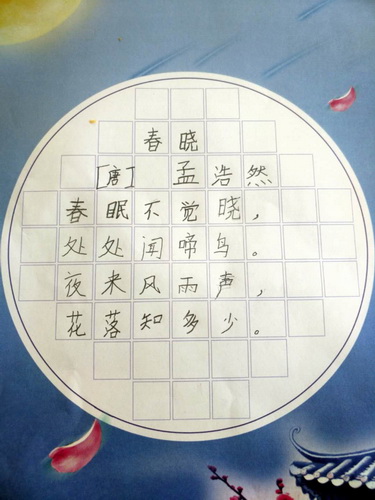 春晓
[唐] 孟浩然
春眠不觉晓，
处处闻啼鸟。
夜来风雨声，
花落知多少。